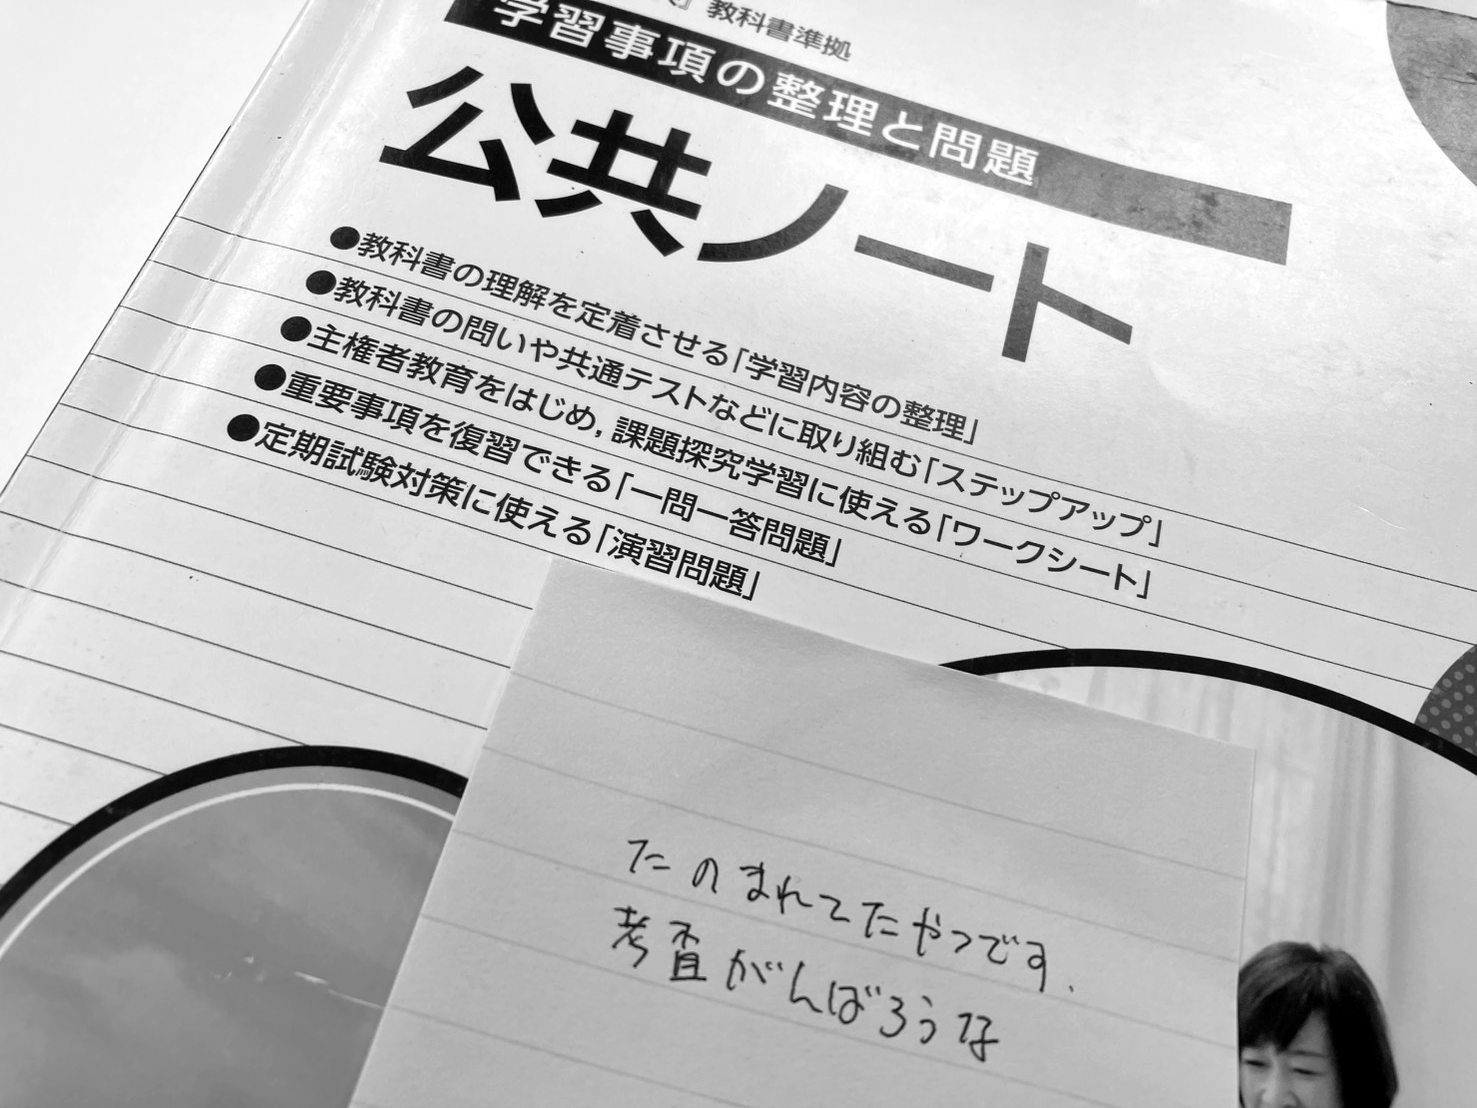 教科書準拠
学習事項の整理と問題
公共ノート
●教科書の理解を定着させる「学習内容の整理」
●教科書の問いや共通テストなどに取り組む「ステップアップ」
●主権者教育をはじめ,課題探究学習に使える「ワークシート」
●重要事項を復習できる「一問一答問題」
●定期試験対策に使える「演習問題」
たのまれてたやつです.
考査がんばろうな